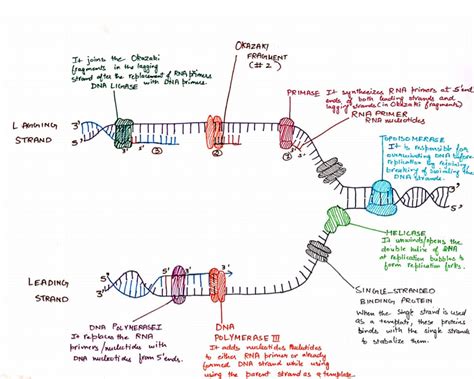 OKAZAKI
FRAGMENT
(#2)
It joins the Okazaki
fragments in the lagging
strand after the replacement of RNA primers
DNA LIGASE with DNA primers.
PRIMASE It synthesizes RNA primers at 5'end
ends of both leading strands and
lagging strands (in Okazaki fragments)
RNA PRIMER
RNA nucleotides
LAGGING
STRAND
3'
5'
3'
5'
TOPOISOMERASE
It is responsible for
overwinding DNA before
replication by
breaking of
DNA strands.
3'
5'
HELICASE
It unwinds/opens the
double helix of DNA
at replication bubbles to
form replication forks.
LEADING
STRAND
5'
3'
5'
3'
SINGLE-STRANDED
BINDING PROTEIN
When the single strand is used
as a template, these proteins
binds with the single strands
to stabalize them.
DNA POLYMERASE I
It replaces the RNA
primers/nucleotides with
DNA nucleotides from 5'ends.
DNA
POLYMERASE III
It adds nucleotides
to either RNA primer or already
formed DNA strand while using
using the parent strand as a template